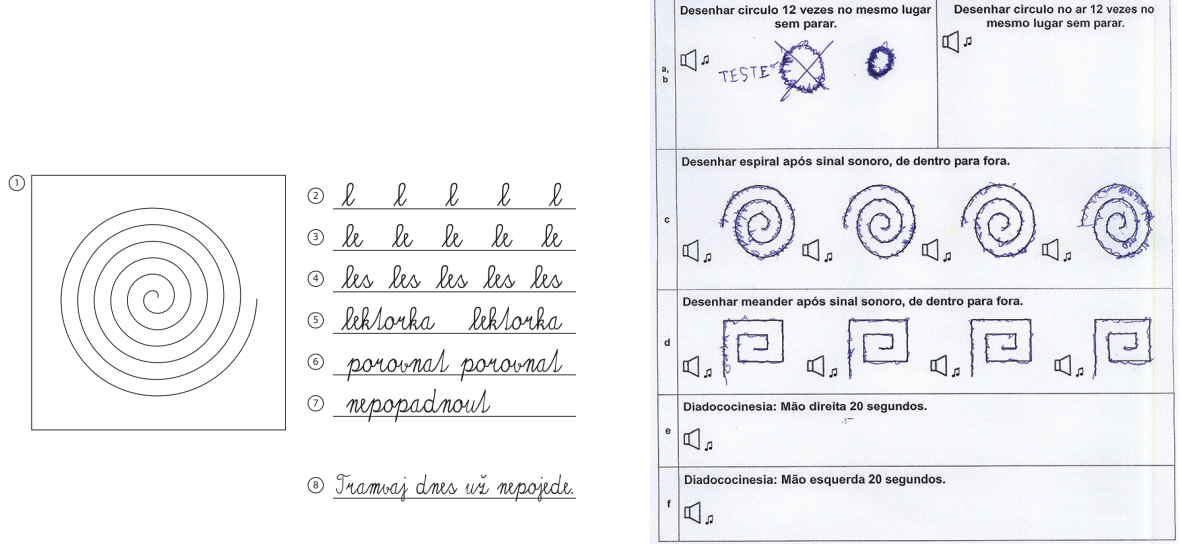 1
2 l l l l l
3 le le le le le
4 les les les les les
5 lektorka lektorka
6 porovnat porovnat
7 nepopadnout
8 Tramvaj dnes už nepojede.
Desenhar circulo 12 vezes no mesmo lugar
sem parar.
a,
b
TESTE
Desenhar circulo no ar 12 vezes no
mesmo lugar sem parar.
c
Desenhar espiral após sinal sonoro, de dentro para fora.
d
Desenhar meander após sinal sonoro, de dentro para fora.
e
Diadococinesia: Mão direita 20 segundos.
f
Diadococinesia: Mão esquerda 20 segundos.